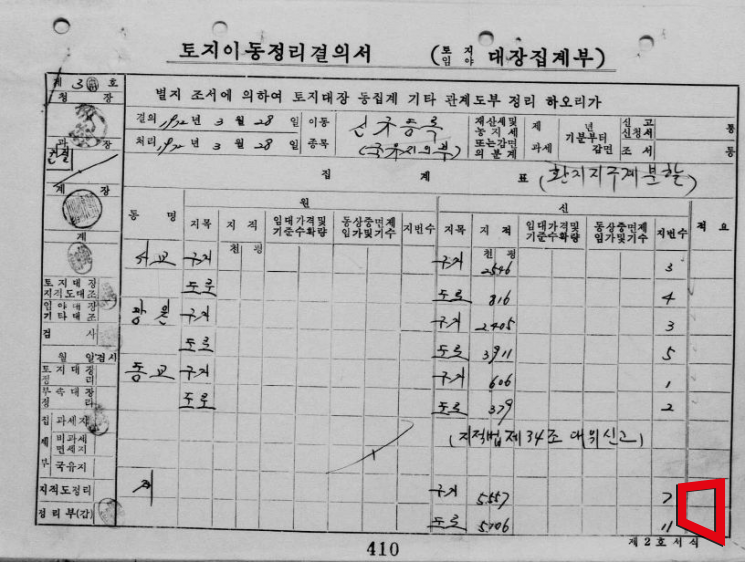 토지이동정리결의서 (토지 임야 대장집계부)
제 3 호
별지 조서에 의하여 토지대장 등집계 기타 관계도부 정리 하오리가
청 장
결의 1972 년 3 월 28 일 이동 신규등록 재산세및 농지세 또는감면 의 분계 제 년 기분부터 과세 감면 신고 신청서 통
처리 1972 년 3 월 28 일 종목 조서 통
과 장
건설
집 계 표 (환지지구계분할)
계 장
계
동 명 원 신 적 요
지목 지 적 임대가격및 기준수확량 동상중면제 임가및기수 지번수 지목 지 적 임대가격및 기준수확량 동상중면제 임가및기수 지번수
천 평 천 평
서교 구거 구거 2546 3
도로 도로 816 4
토지대장 지적도대조
임야대장 기타대조
구거 구거 2405 3
검 사
도로 도로 3911 5
월 일 검시
토지대장 정 리
동교 구거 구거 606 1
부속대장 정 리
도로 도로 379 2
집 과세지
(지적법 제34조 대위신고)
계 비과세 면세지
부 국유지
지적도정리
계 구거 5557 7
정리부(갑)
도로 5106 11
410
제 2 호 서 식